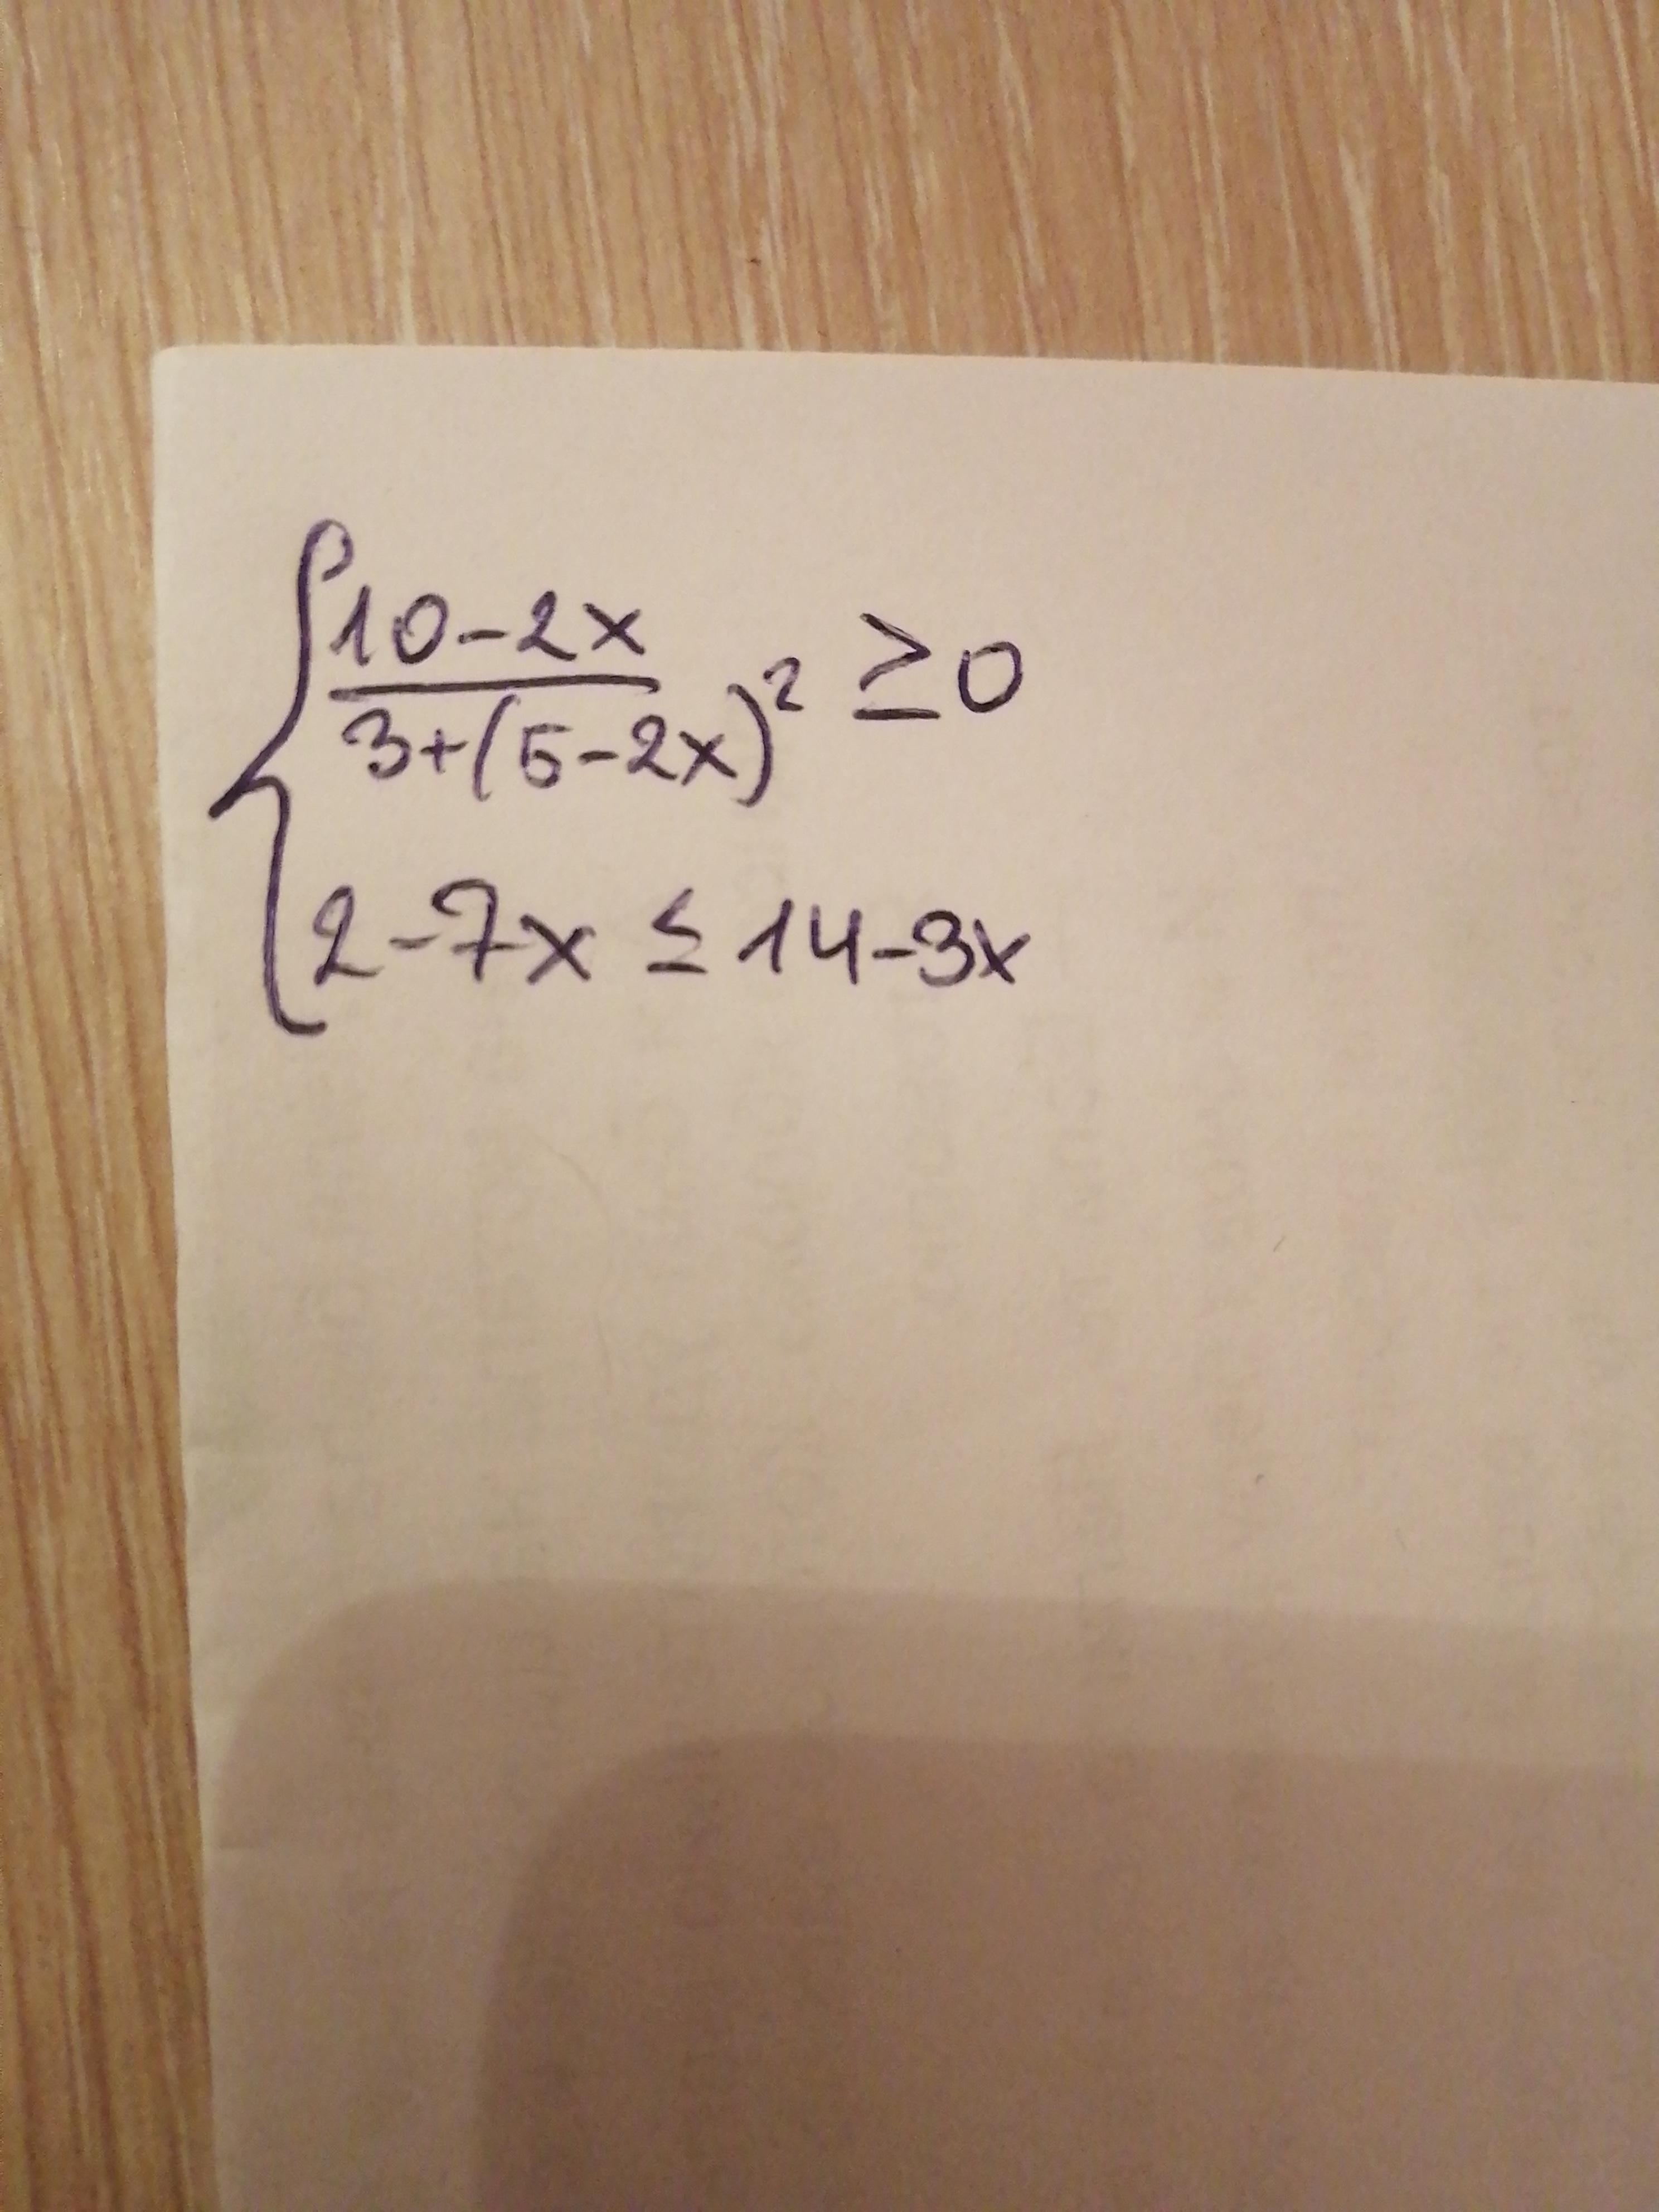 10-2x / 3+(5-2x)² ≥0
2-7x ≤ 14-3x